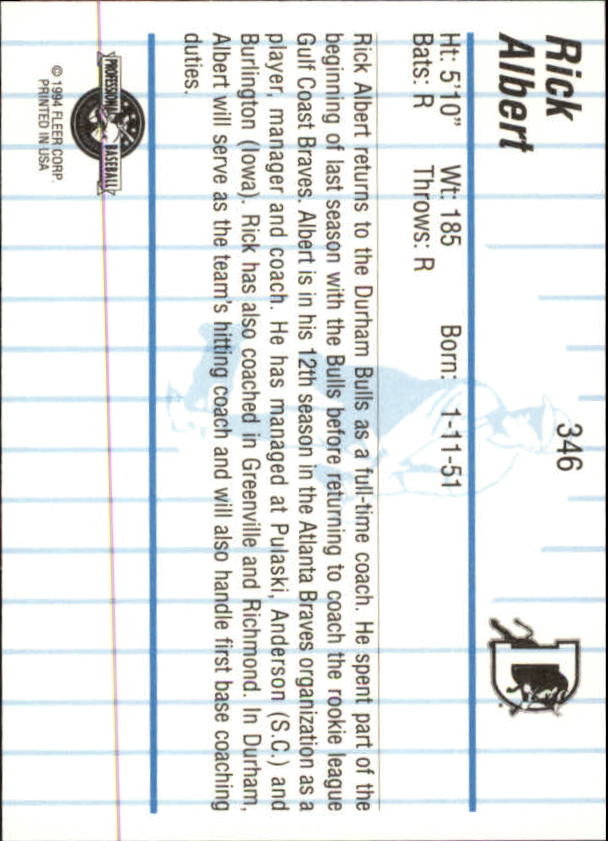 346
Rick
Albert
Ht: 5'10" Wt: 185 Born: 1-11-51
Bats: R Throws: R
Rick Albert returns to the Durham Bulls as a full-time coach. He spent part of the
beginning of last season with the Bulls before returning to coach the rookie league
Gulf Coast Braves. Albert is in his 12th season in the Atlanta Braves organization as a
player, manager and coach. He has managed at Pulaski, Anderson (S.C.) and
Burlington (Iowa). Rick has also coached in Greenville and Richmond. In Durham,
Albert will serve as the team's hitting coach and will also handle first base coaching
duties.
PROFESSIONAL BASEBALL
© 1994 FLEER CORP.
PRINTED IN USA
D